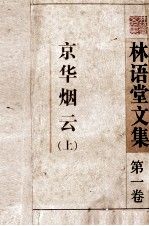 林语堂文集
第一卷
京华烟云
(上)